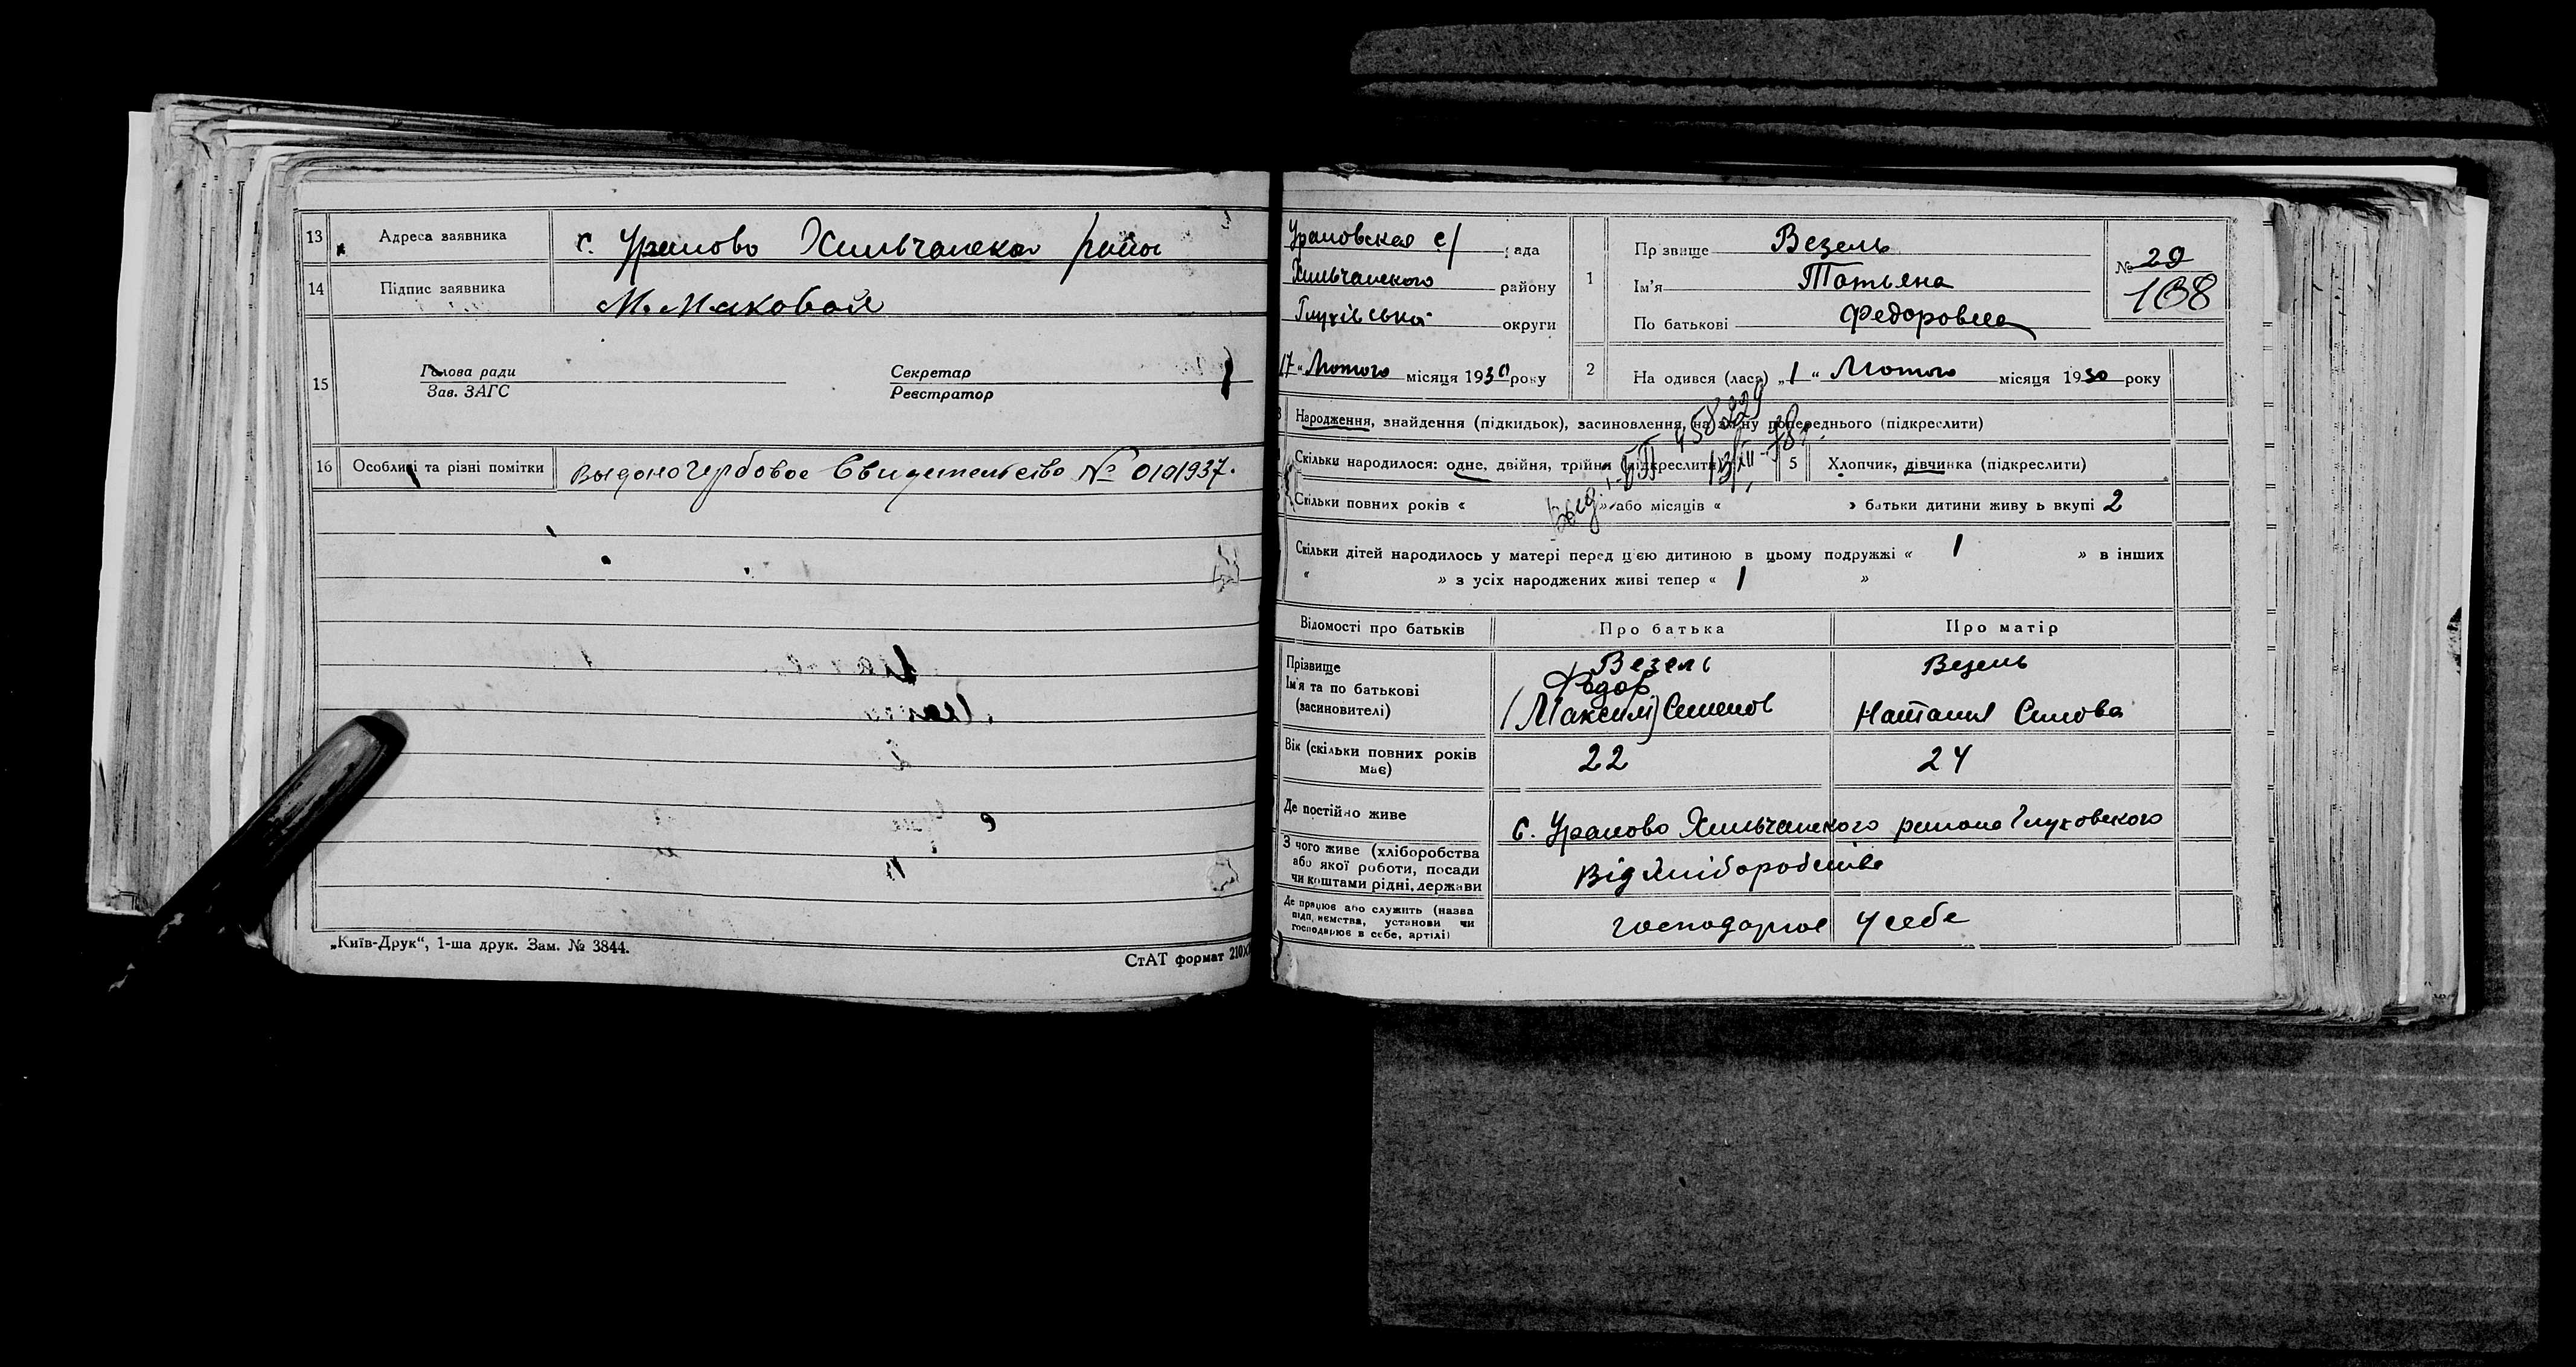 13 Адреса заявника с. Уралово Хильчанского район
14 Підпис заявника М. Маковой
15 Голова ради
Зав. ЗАГС
Секретар
Реєстратор
16 Особливі та різні помітки Выдано Гербовое Свидетельство № 0101937.
„Київ-Друк“, 1-ша друк. Зам. № 3844.
СтАТ формат 210X
Ураловская с/ рада
Хильчанского району
Глухівської округи
17 „ Лютого місяця 1930 року
1 Прізвище Везель
Ім'я Татьяна
По батькові Федоровна
№ 29
138
2 На одився (лася) „1“ Лютого місяця 1930 року
Народження, знайдення (підкидьок), засиновлення, на зміну попереднього (підкреслити)
Скільки народилося: одне, двійня, трійня (підкреслити)
5 Хлопчик, дівчинка (підкреслити)
Скільки повних років « » або місяців « » батьки дитини живу ь вкупі 2
Скільки дітей народилось у матері перед цією дитиною в цьому подружжі « 1 » в інших
« » з усіх народжених живі тепер « 1 »
Відомості про батьків Про батька Про матір
Прізвище Везель Везель
Ім'я та по батькові Федор
(засиновителі) (Максим) Семенов Наталия Силова
Вік (скільки повних років має) 22 24
Де постійно живе с. Уралово Хильчанского района Глуховского
З чого живе (хліборобства або якої роботи, посади чи коштами рідні, держави Від хліборобства
Де працює або служить (назва підприємства, установи чи господарює в себе, артілі) господарює у себе